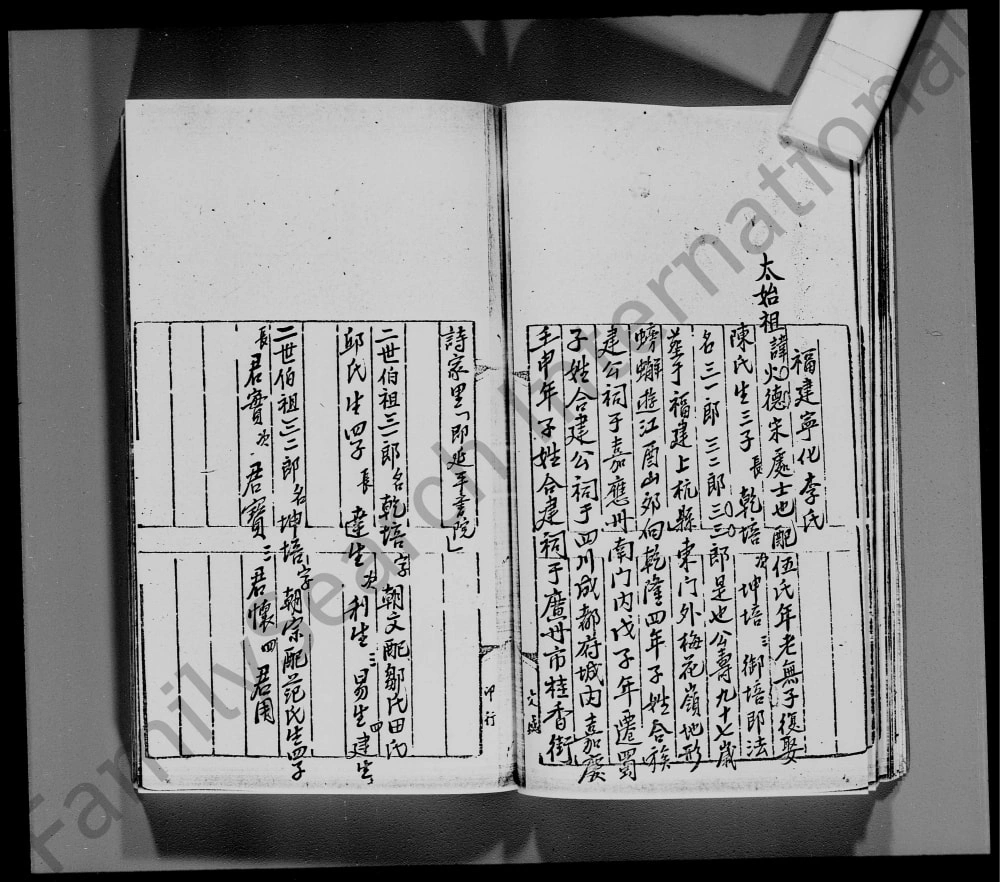 福建寧化李氏
太始祖諱火德宋處士也配伍氏年老無子復娶
陳氏生三子長乾培次坤培三御培即法
名三一郎三二郎三三郎是也公壽九十七歲
葬于福建上杭縣東門外梅花嶺地形
螃蠏遊江酉山夘向乾隆四年子姓合族
建公祠于嘉應州南門内戊子年遷蜀
子姓合建公祠于四川成都府城内嘉慶
壬申年子姓合建祠于廣州市桂香街
詩家里「即延平書院」
二世伯祖三一郎名乾培字朝文配鄒氏田氏
邱氏生四子長達生次利生三易生四建生
二世伯祖三二郎名坤培字朝宗配范氏生四子
長君實次君寶三君懷四君用
印行
FamilySearch International